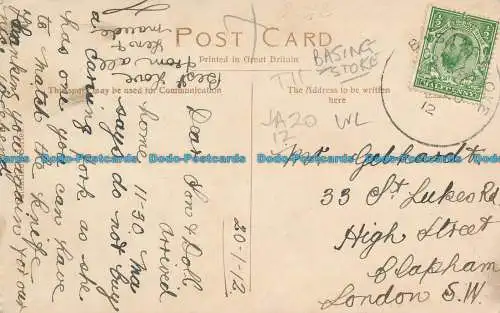 POST CARD
Printed in Great Britain
This space may be used for Communication
The Address to be written here
BASING
STOKE
T11
JA 20
12
WL
HALFPENNY
12
20-1-12
Dear Son & Doll
Arrived
home 11-30 ma
says do not buy
a carving fork as she
has one you can have
to match the knife
Thanking you again for our
weekend
Best Love
from all
Len &
maude
Mr Gebhardt
33 St Lukes Rd
High Street
Clapham
London S.W.
Dodo-Postcards Dodo-Postcards Dodo-Postcards Dodo-Postcards Dodo-Postcards